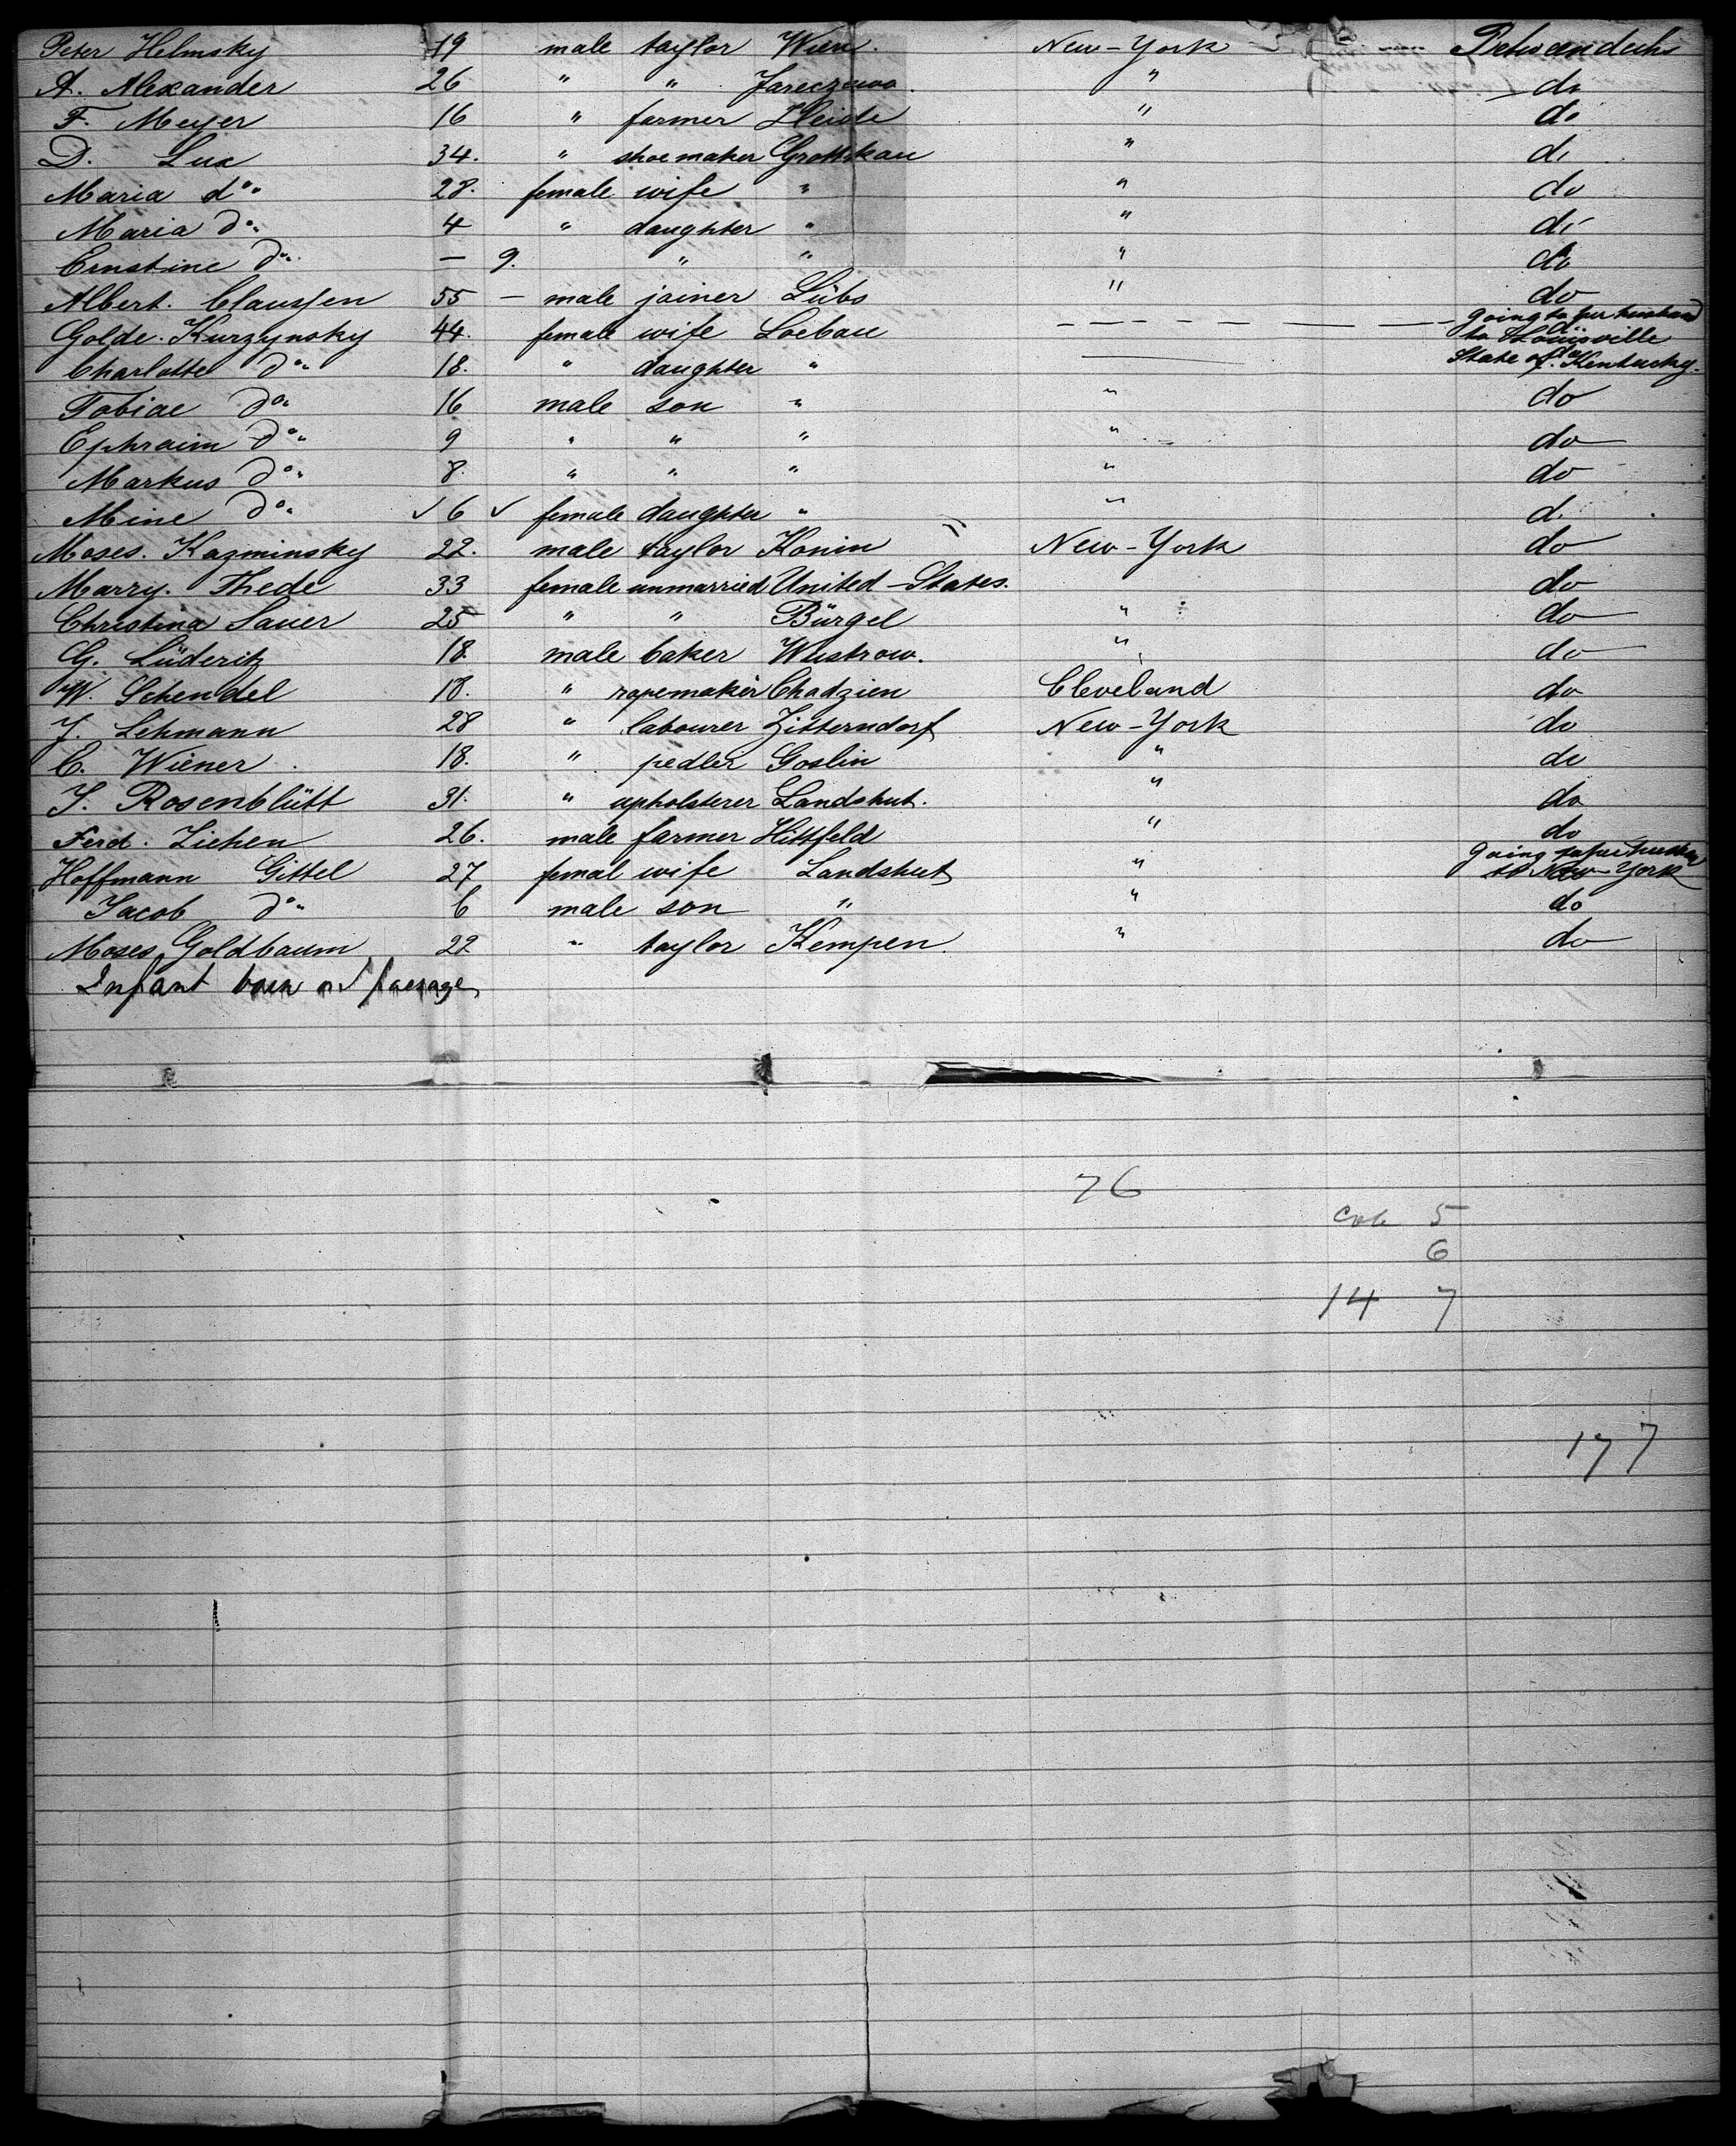 Peter Helmsky 19 male taylor Wien. New-York
A. Alexander 26 " " Jareczewo. " do
F. Meyer 16 " farmer Heide " do
D. Lux 34. " shoemaker Grottkau " do
Maria do. 28. female wife " " do
Maria do. 4 " daughter " " do
Ernstine do. — 9. " " " do
Albert. Claussen 55 — male joiner Lübs " do
Golde. Kurzynsky 44. female wife Loebau — — — — — — — going to her husband
to Louisville
Charlotte do. 18. " daughter " State of Kentucky.
Tobiae do. 16 male son " " do
Ephraim do. 9 " " " " do
Markus do. 8. " " " " do
Mine do. ✓ 6 ✓ female daughter " " do
Moses. Kazminsky 22. male taylor Konin New-York do
Marry. Thede 33 female unmarried United-States. do
Christina Sauer 25 " " Bürgel " do
G. Lüderitz 18. male baker Wustrow. " do
W. Schendel 18. " ropemaker Chadzien Cleveland do
J. Lehmann 28 " labourer Zitterndorf New-York do
C. Wiener 18. " pedler Goslin " do
J. Rosenblütt 31. " upholsterer Landshut. " do
Ferd. Ziehen 26. male farmer Hittfeld " do
Hoffmann Gittel 27 femal wife Landshut " going to her husband
to New-York
Jacob do. 6 male son " " do
Moses Goldbaum 22 " taylor Kempen. " do
Infant born on passage
76
5
6
14 7
177